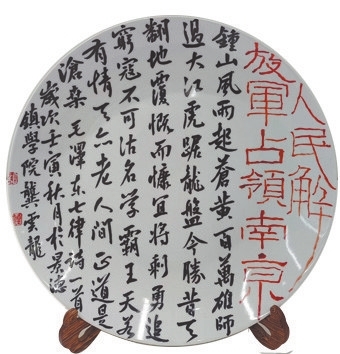 人民解
放軍占領南京
鍾山風雨起蒼黃百萬雄師
過大江虎踞龍盤今勝昔天
翻地覆慨而慷宜將剩勇追
窮寇不可沽名學霸王天若
有情天亦老人間正道是
滄桑 毛澤東七律詩一首
歲次壬寅秋月於景德
鎮學院龔雲龍